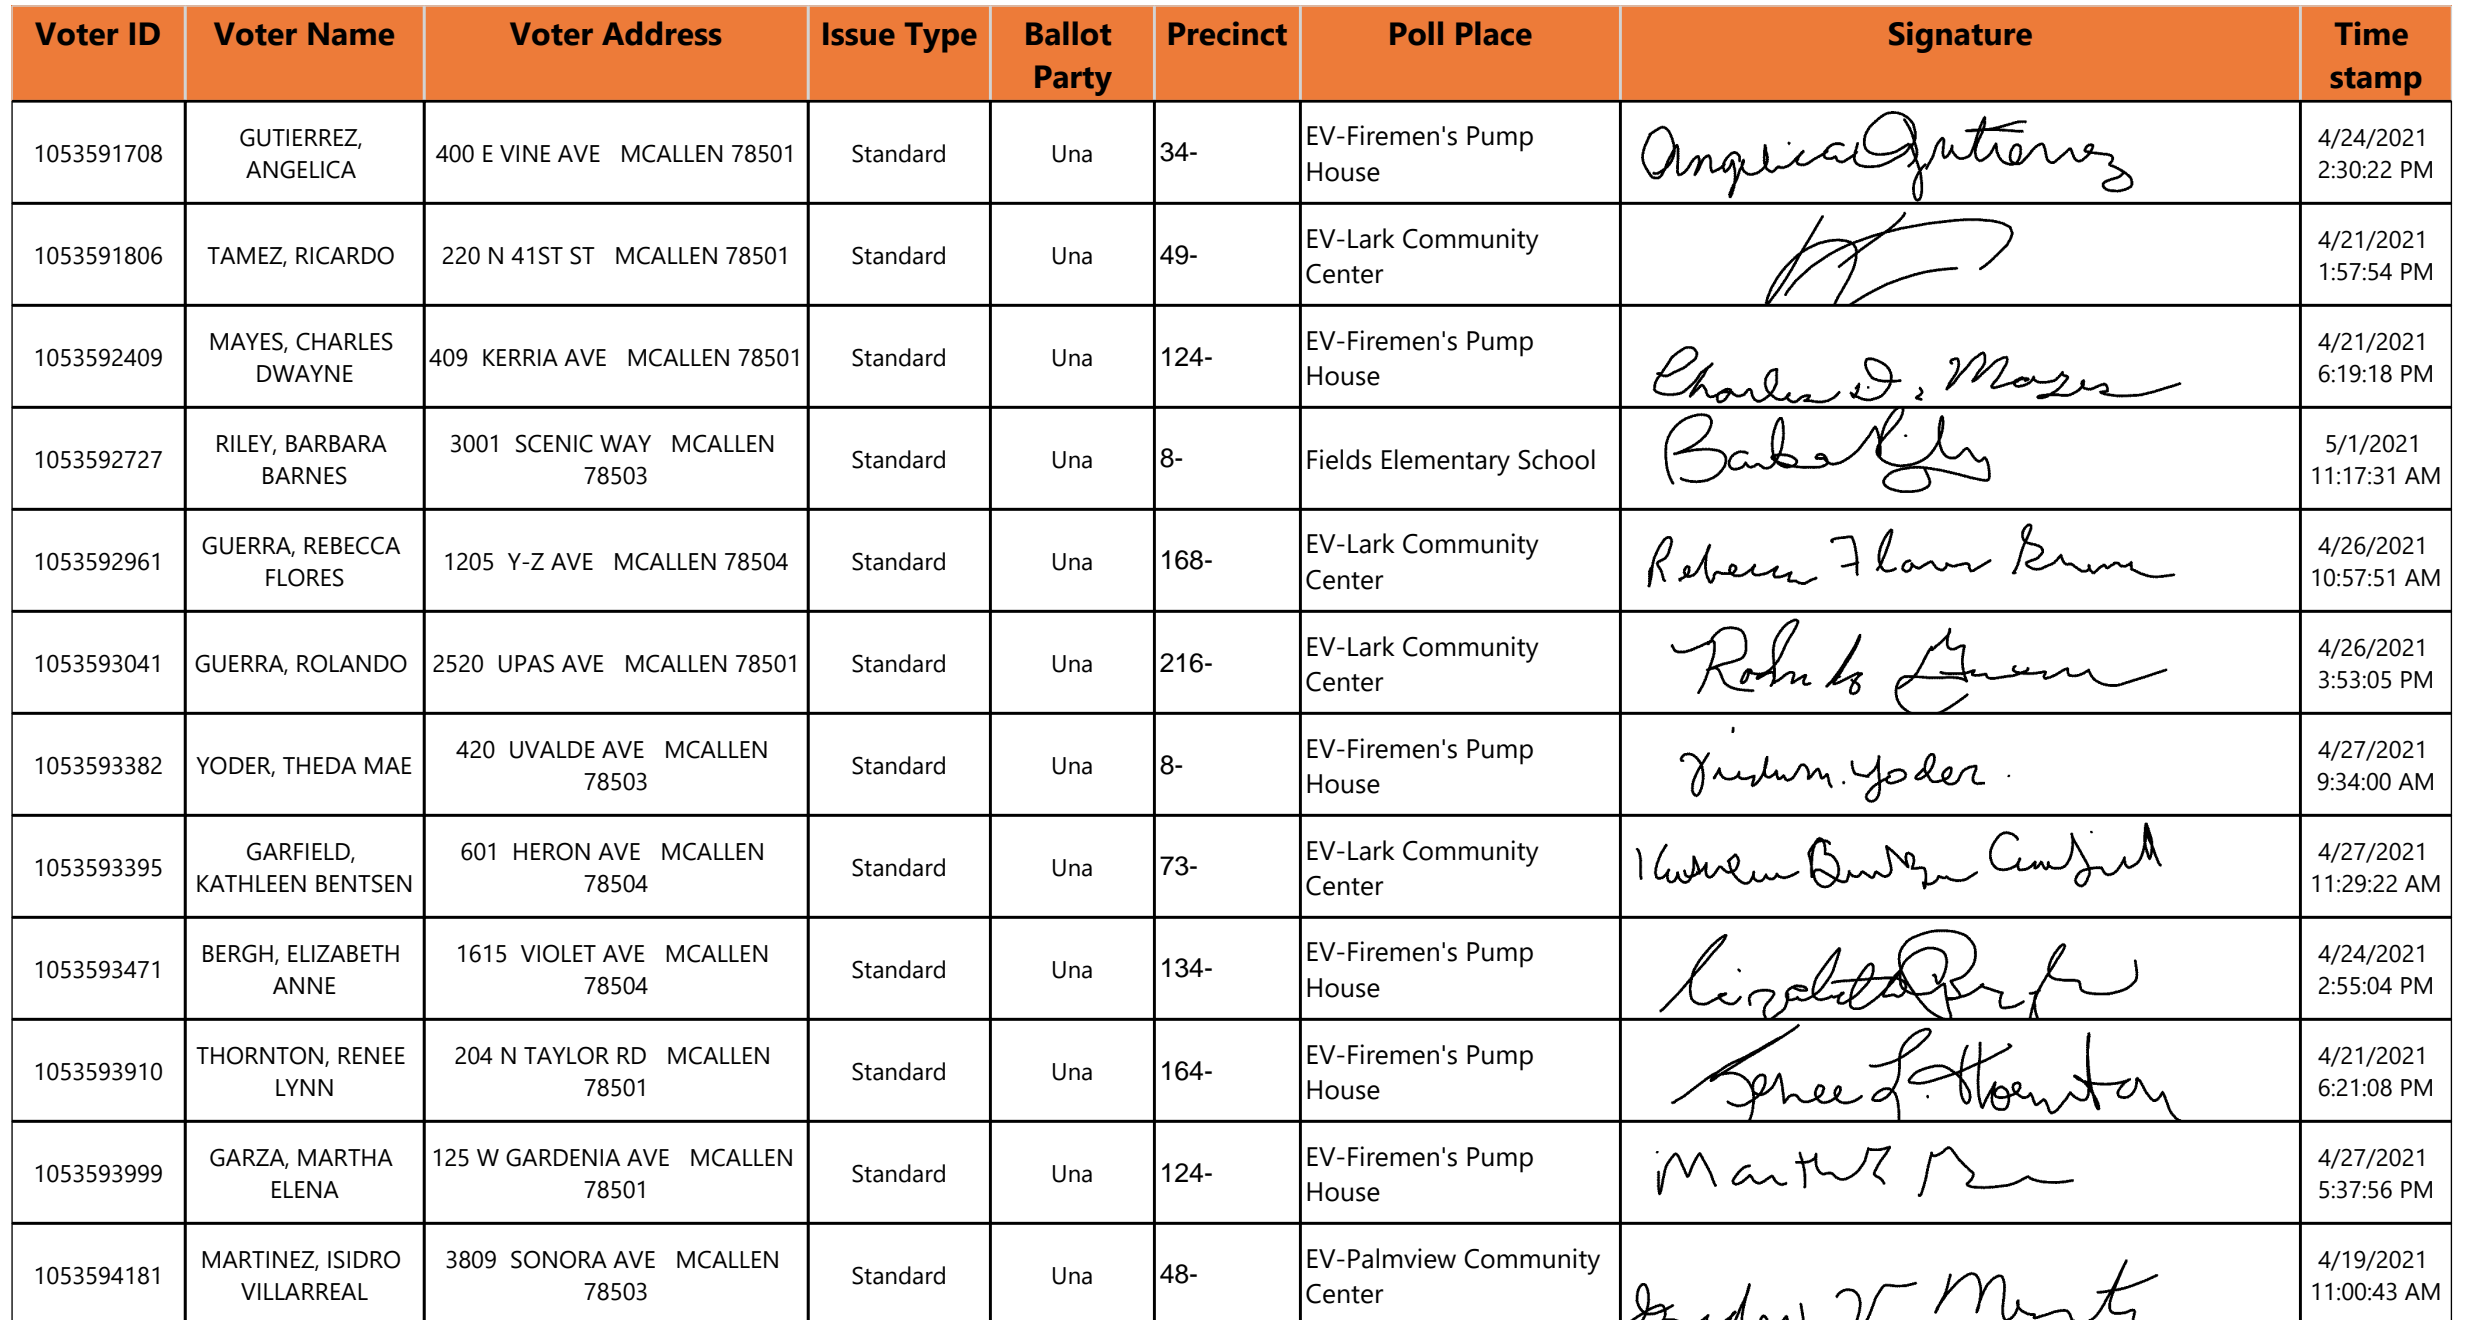 Voter ID Voter Name Voter Address Issue Type Ballot Party Precinct Poll Place Signature Time stamp
1053591708 GUTIERREZ, ANGELICA 400 E VINE AVE MCALLEN 78501 Standard Una 34- EV-Firemen's Pump House Angelica Gutierrez 4/24/2021 2:30:22 PM
1053591806 TAMEZ, RICARDO 220 N 41ST ST MCALLEN 78501 Standard Una 49- EV-Lark Community Center 4/21/2021 1:57:54 PM
1053592409 MAYES, CHARLES DWAYNE 409 KERRIA AVE MCALLEN 78501 Standard Una 124- EV-Firemen's Pump House Charles D. Mayes 4/21/2021 6:19:18 PM
1053592727 RILEY, BARBARA BARNES 3001 SCENIC WAY MCALLEN 78503 Standard Una 8- Fields Elementary School 5/1/2021 11:17:31 AM
1053592961 GUERRA, REBECCA FLORES 1205 Y-Z AVE MCALLEN 78504 Standard Una 168- EV-Lark Community Center Rebecca Flores Guerra 4/26/2021 10:57:51 AM
1053593041 GUERRA, ROLANDO 2520 UPAS AVE MCALLEN 78501 Standard Una 216- EV-Lark Community Center Rolando Guerra 4/26/2021 3:53:05 PM
1053593382 YODER, THEDA MAE 420 UVALDE AVE MCALLEN 78503 Standard Una 8- EV-Firemen's Pump House m. Yoder 4/27/2021 9:34:00 AM
1053593395 GARFIELD, KATHLEEN BENTSEN 601 HERON AVE MCALLEN 78504 Standard Una 73- EV-Lark Community Center 4/27/2021 11:29:22 AM
1053593471 BERGH, ELIZABETH ANNE 1615 VIOLET AVE MCALLEN 78504 Standard Una 134- EV-Firemen's Pump House Elizabeth Bergh 4/24/2021 2:55:04 PM
1053593910 THORNTON, RENEE LYNN 204 N TAYLOR RD MCALLEN 78501 Standard Una 164- EV-Firemen's Pump House Renee L. Thornton 4/21/2021 6:21:08 PM
1053593999 GARZA, MARTHA ELENA 125 W GARDENIA AVE MCALLEN 78501 Standard Una 124- EV-Firemen's Pump House Martha 4/27/2021 5:37:56 PM
1053594181 MARTINEZ, ISIDRO VILLARREAL 3809 SONORA AVE MCALLEN 78503 Standard Una 48- EV-Palmview Community Center 4/19/2021 11:00:43 AM